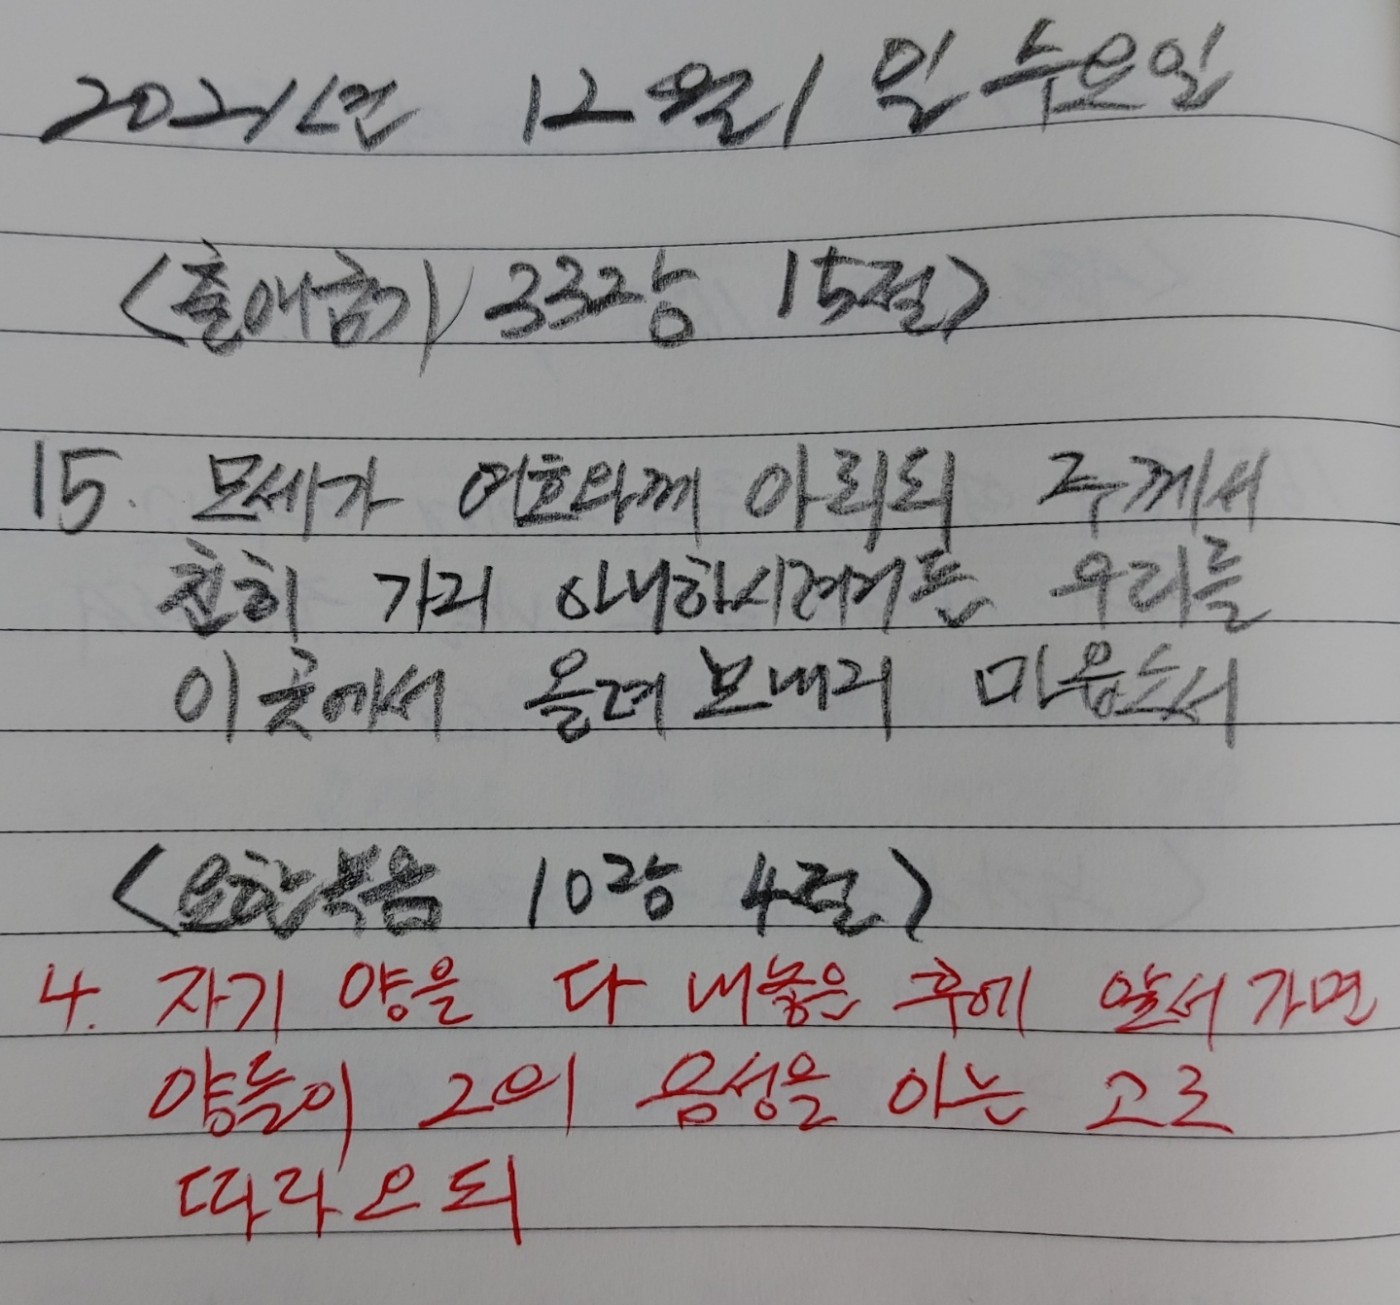 2021년 12월 1일 수요일
<출애굽기 33장 15절>
15. 모세가 여호와께 아뢰되 주께서
친히 가지 아니하시려거든 우리를
이 곳에서 올려 보내지 마옵소서
<요한복음 10장 4절>
4. 자기 양을 다 내놓은 후에 앞서 가면
양들이 그의 음성을 아는 고로
따라 오되